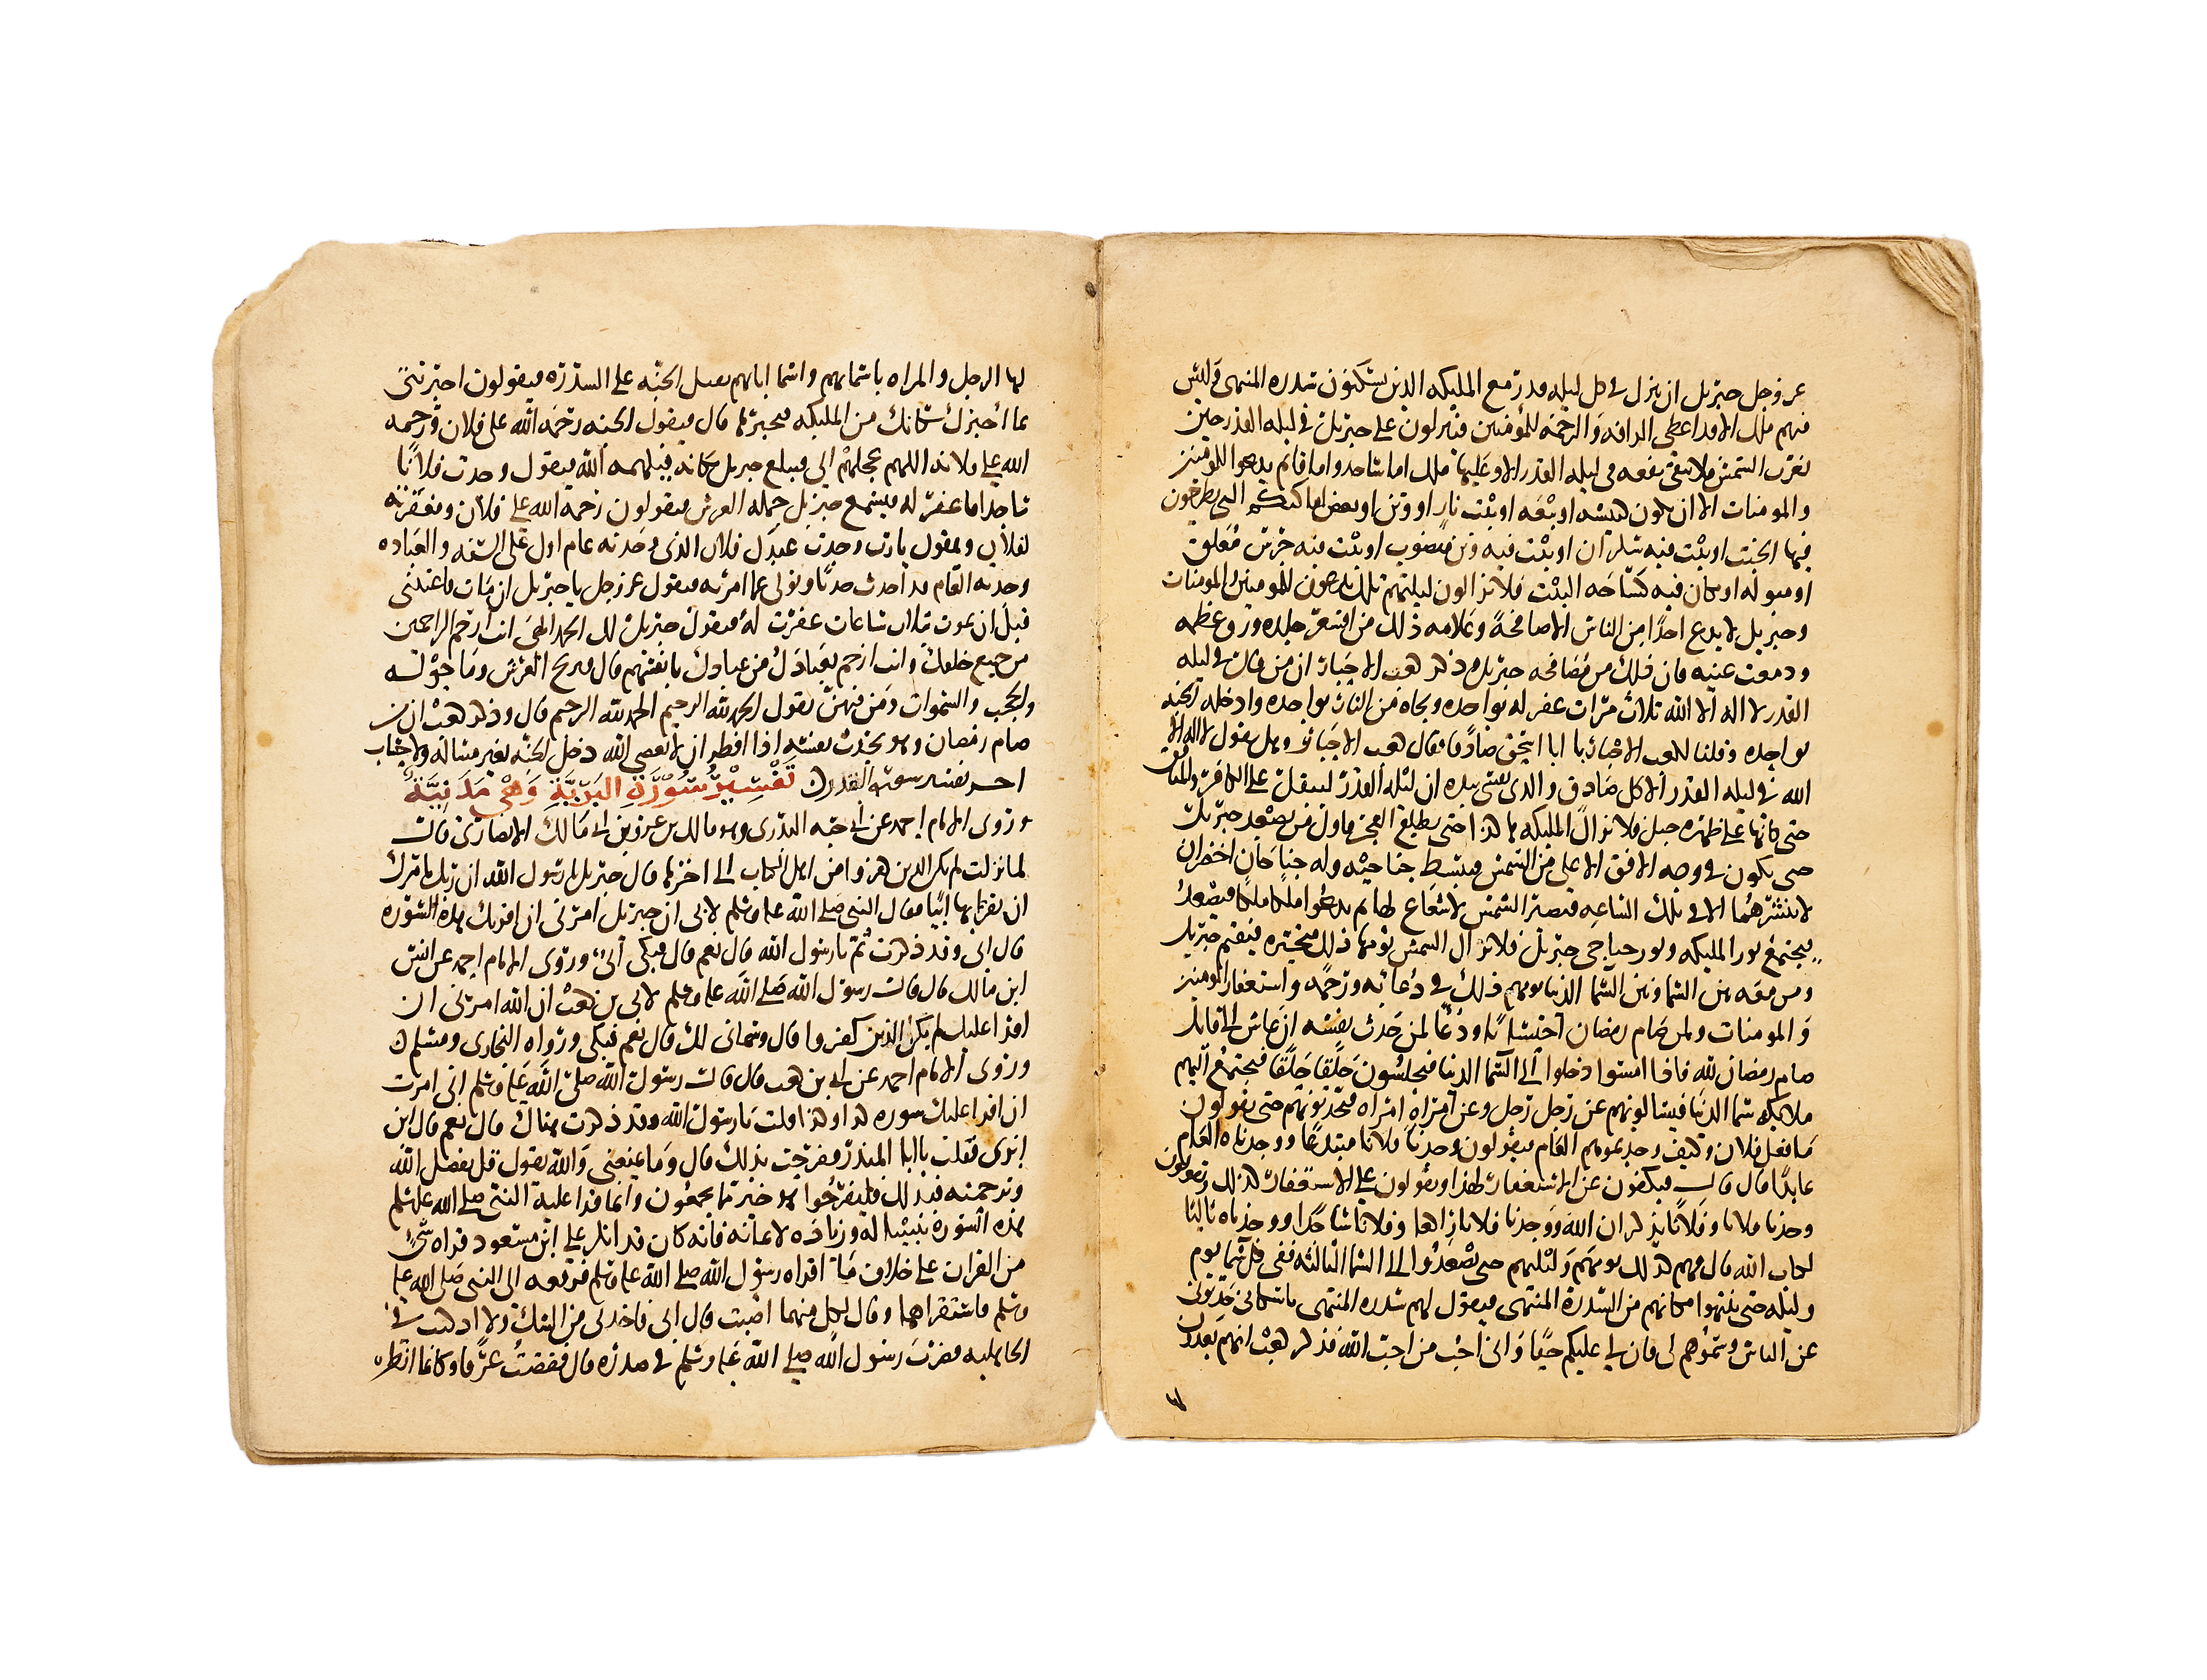 عز وجل جبريل ان ينزل في كل ليله قدر مع المليكه الذين يسكنون سدره المنتهى فليس
فيهم ملك الا قد اعطى الرافه والرحمه للمؤمنين فينزلون على جبريل في ليله القدر حين
تغرب الشمس فلا تبقى بقعه في ليله القدر الا وعليها ملك اما ساجد واما قايم يدعوا للمومنين
والمومنات الا ان تكون كنيسه او بيعه او بيت نار او وثن او بعض اماكنكم التي تطرحون
فيها الخبث او بيت فيه سكران او بيت فيه وثن منصوب او بيت فيه جرس معلق
او مبوله او مكان فيه كساحه البيت فلا يزالون ليلتهم تلك يدعون للمومنين والمومنات
وجبريل لا يدع احدا من الناس الا صافحه وعلامه ذلك من اقشعر جلده ورق قلبه
ودمعت عينيه فان ذلك من مصافحه جبريل وذكر كعب الاحبار ان من قال في ليله
القدر لا اله الا الله ثلاث مرات غفر له بواحده ونجاه من النار بواحده وادخله الجنه
بواحده وقلنا لكعب الاحبار يا ابا اسحق صادقا فقال كعب الاحبار وهل يقول لا اله الا
الله في ليله القدر الا كل صادق والذي نفسي بيده ان ليله القدر لتثقل على الكافر والمنافق
حتى كانها على ظهره جبل فلا تزال المليكه هكذا حتى يطلع الفجر فاول من يصعد جبريل
حتى يكون في وجه الافق الاعلى من الشمس فيبسط جناحيه وله جناحان اخضران
لا ينشرهما الا في تلك الساعه فتصير الشمس لا شعاع لها ثم يدعوا ملكا ملكا فيصعد
فيجتمع نور المليكه ونور جناحي جبريل فلا تزال الشمس يومها ذلك متحيره فيقيم جبريل
ومن معه بين السما وبين السما الدنيا يومهم ذلك في دعا ته ورحمه واستغفار للمومنين
والمومنات ولمن صام رمضان احتسابا ودعا لمن حدث نفسه ان عاش الى قابل
صام رمضان لله فاذا امسوا دخلوا الى السما الدنيا فيجلسون حلقا حلقا فيجتمع اليهم
ملايكه سما الدنيا فيسالونهم عن رجل رجل وعن امراه امراه فيحدثونهم حتى يقولون
ما فعل فلان وكيف وجدتموه العام فيقولون وجدنا فلانا مبتدعا ووجدناه العام
عابدا قال فيكفون عن الاستغفار لهذا ويقولون على الاستغفار لذلك ويقولون
وجدنا فلانا وفلانا يذكران الله ووجدنا فلانا راكعا وفلانا ساجدا ووجدناه تاليا
لكتاب الله قال فهم كذلك يومهم وليلتهم حتى يصعدوا الى السما الثانيه ففي كل سما يوم
وليله حتى ينتهوا مكانهم من السدره المنتهى فيقول لهم سدره المنتهى يا سكاني حدثوني
عن الناس وسموهم لي فان لي عليكم حقا واني احب من احب الله فذكر كعب انهم يعدون
لها الرجل والمراه باسمايهم واسما ابايهم تقبل الجنه على السدره فيقولون اخبرتني
بما اخبرك سكانك من المليكه فتخبرها قال فيقول الجنه رحمه الله على فلان ورحمه
الله على فلانه اللهم عجلهم الي فيبلع جبريل مكانه فيلهمه الله فيقول وجدت فلانا
ساجدا فاغفر له فيسمع جبريل حمله العرش فيقولون رحمه الله على فلان ومغفرته
لفلان ويقول يا رب وجدت عبدك فلان الذي وجدته عام اول على السنه والعباده
وجدته العام قد احدث حدثا وتولى عما امرته فيقول عز وجل يا جبريل ان تاب فاعتبني
قبل ان يموت ثلاث ساعات غفرت له فيقول جبريل لك الحمد الهي انت ارحم الراحمين
من جميع خلقك وانت ارحم بعبادك من عبادك بانفسهم قال فيرتج العرش وما حوله
والحجب والسموات ومن فيهن تقول الحمد لله الرحيم الحمد لله الرحيم قال وذكر كعب ان من
صام رمضان وهو يحدث نفسه اذا افطر ان لا يعصي الله دخل الجنه بغير مساله ولا حساب
اخر تفسير سوره القدر تفسير سورة البرية وهي مدنية
وروى الامام احمد عن ابي حبه البدري وهو مالك بن عمرو بن ابي مالك الانصاري قال
لما نزلت لم يكن الذين كفروا من اهل الكتاب الى اخرها قال جبريل يا رسول الله ان ربك يامرك
ان تقريها ابيا فقال النبي صلى الله عليه وسلم لابي ان جبريل امرني ان اقريك هذه السوره
قال ابي وقد ذكرت ثم يا رسول الله قال نعم قال فبكى ابي وروى الامام احمد عن انس
ابن مالك قال قال رسول الله صلى الله عليه وسلم لابي بن كعب ان الله امرني ان
اقرا عليك لم يكن الذين كفروا قال وسماني لك قال نعم فبكى ورواه البخاري ومسلم
وروى الامام احمد عن ابي بن كعب قال قال رسول الله صلى الله عليه وسلم اني امرت
ان اقرا عليك سوره كذا وكذا قلت يا رسول الله وقد ذكرت هناك قال نعم قال ابن
ابزى فقلت يا ابا المنذر ففرحت بذلك قال وما يمنعني والله يقول قل بفضل الله
وبرحمته فبذلك فليفرحوا هو خير مما يجمعون وانما قرا عليه النبي صلى الله عليه وسلم
هذه السورة تثبيتا له وزياده لايمانه فانه كان قد انكر على ابن مسعود قراه شي
من القران على خلاف ما اقراه رسول الله صلى الله عليه وسلم فرفعه الى النبي صلى الله عليه
وسلم فاستقراهما وقال لكل منهما اصبت قال ابي فاخذني من الشك ولا اذ كنت في
الجاهليه فضرب رسول الله صلى الله عليه وسلم في صدره قال ففضت عرقا وكانما انظر